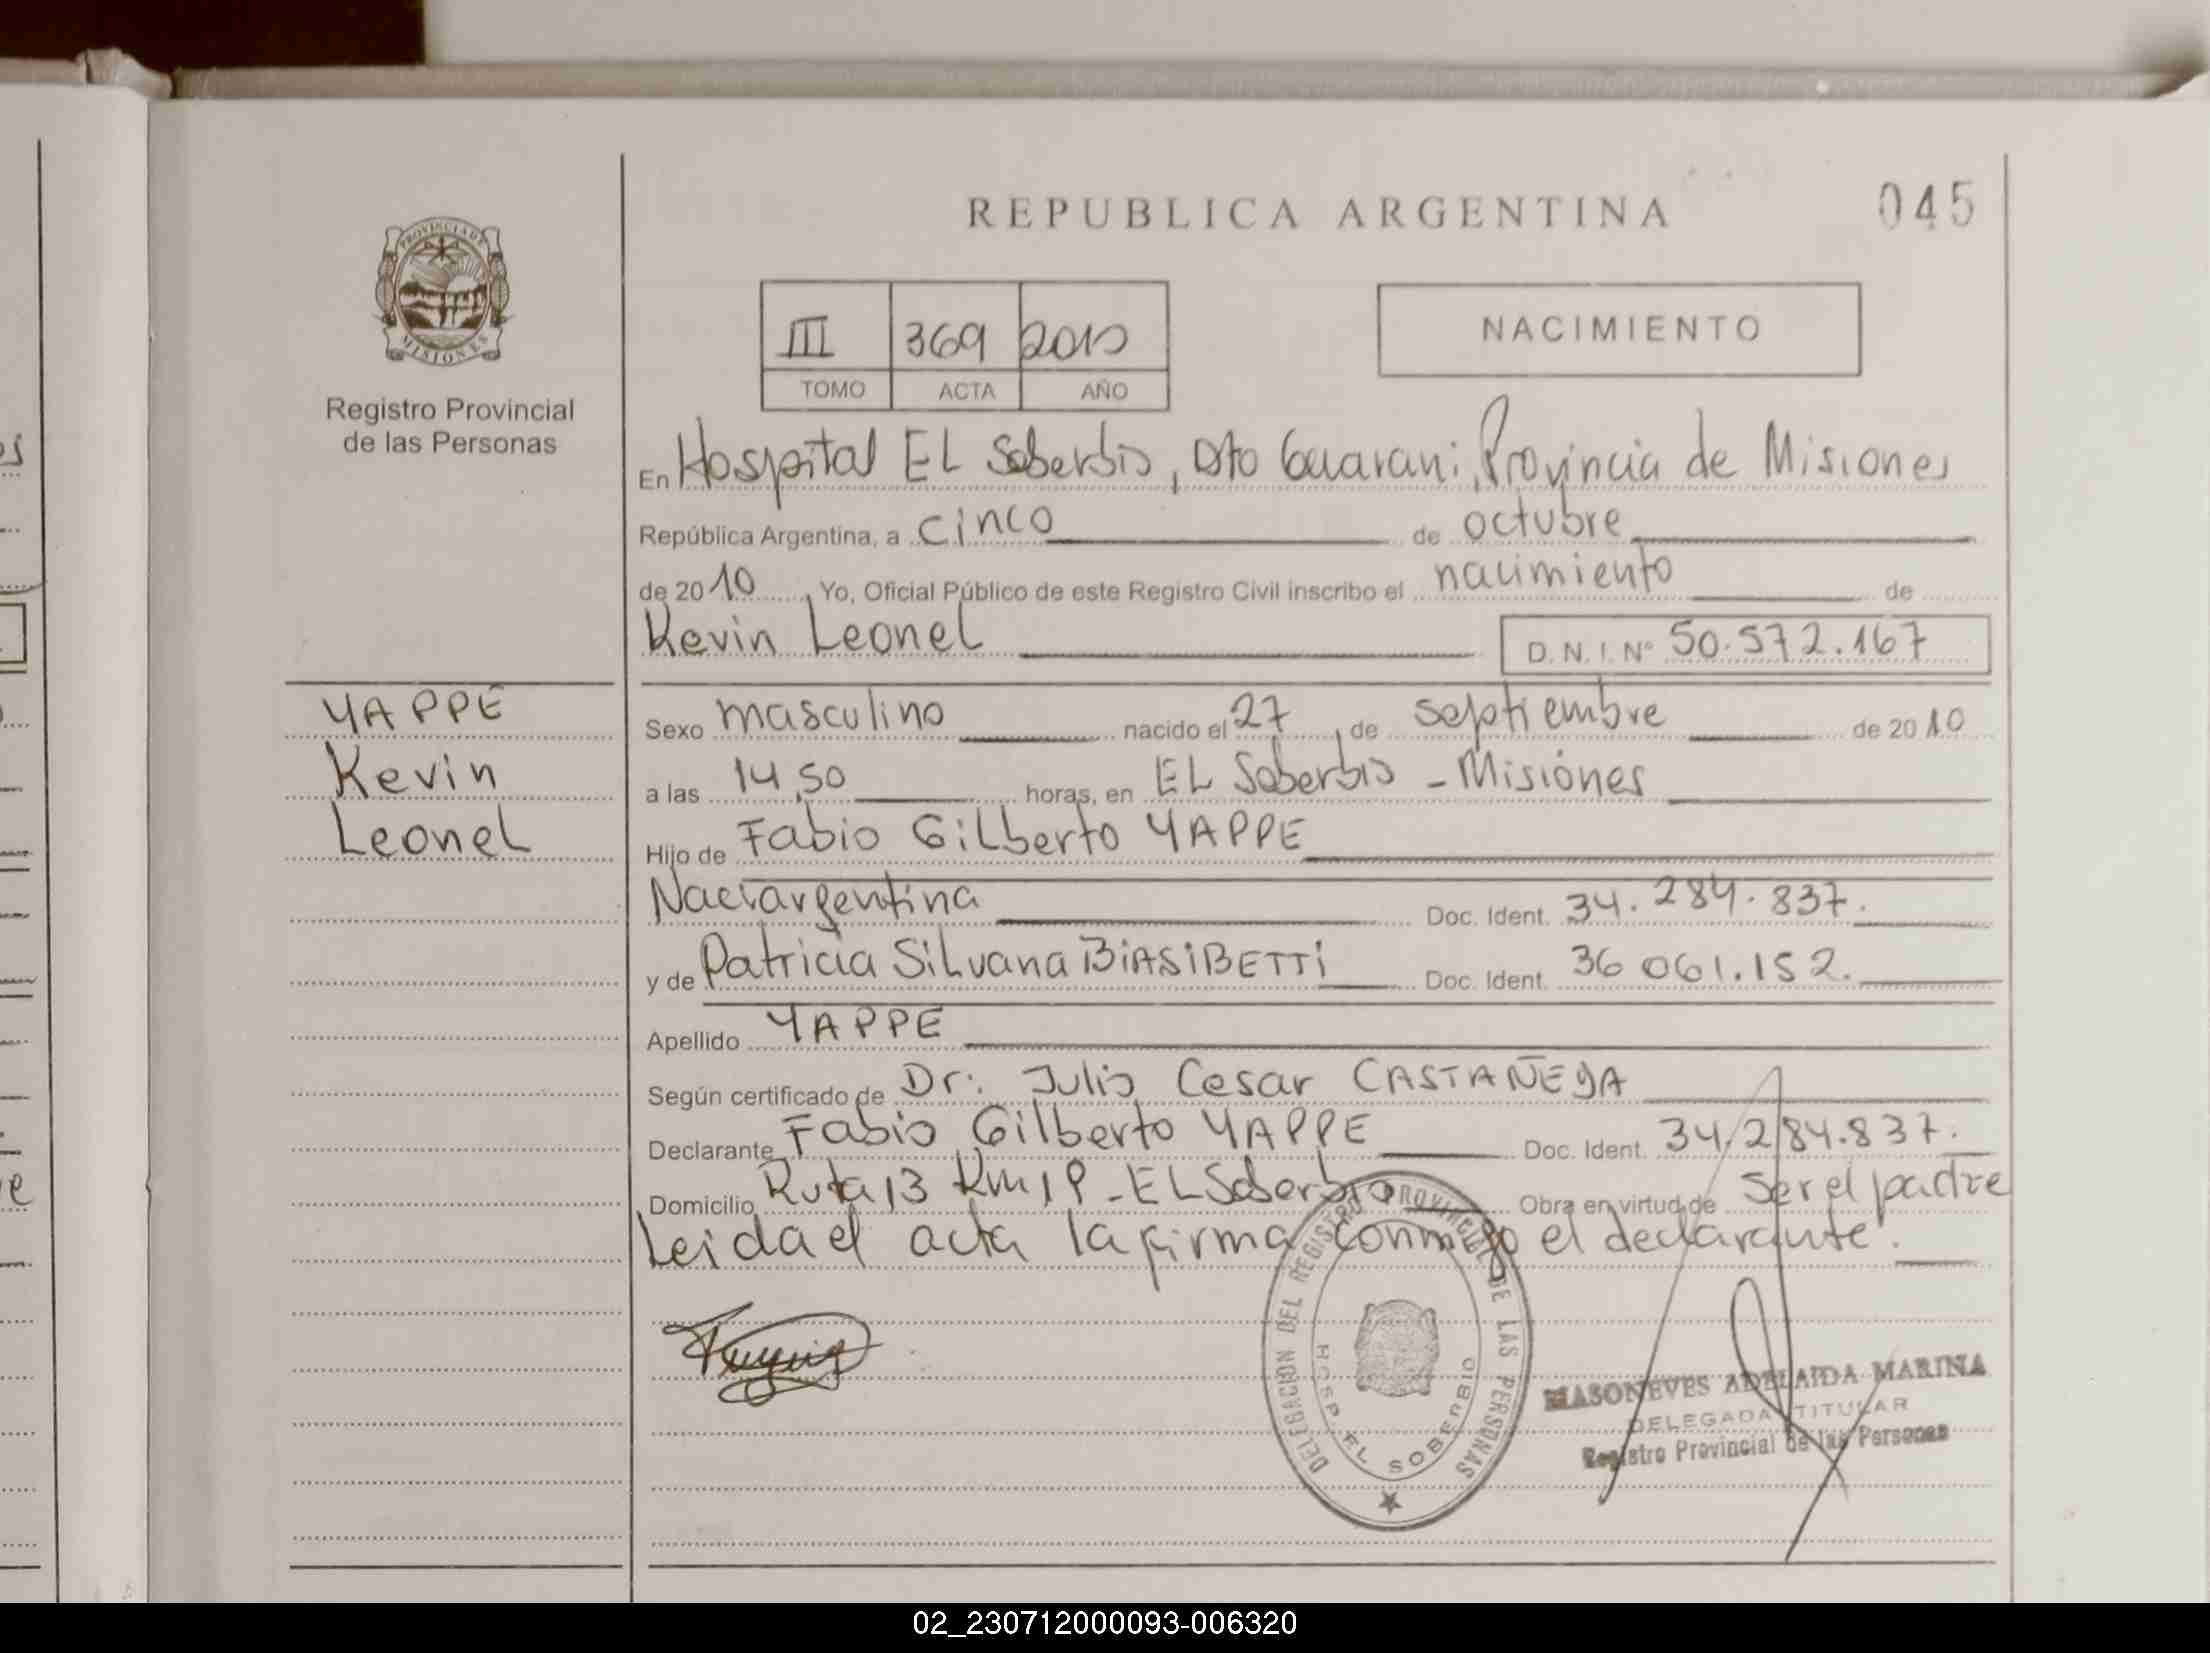 REPUBLICA ARGENTINA
045
PROVINCIA DE
MISIONES
Registro Provincial
de las Personas
III 369 2010
TOMO ACTA AÑO
NACIMIENTO
En Hospital EL Soberbio, Dto Guarani, Provincia de Misiones
República Argentina, a cinco de octubre
de 2010, Yo, Oficial Público de este Registro Civil inscribo el nacimiento de
Kevin Leonel D.N.I. Nº 50.572.167
YAPPE
Kevin
Leonel
Sexo masculino nacido el 27, de septiembre de 2010
a las 14,50 horas, en EL Soberbio - Misiones
Hijo de Fabio Gilberto YAPPE
Nac: argentina Doc. Ident. 34.284.837.
y de Patricia Silvana BiASiBETTi Doc. Ident. 36 061.152.
Apellido YAPPE
Según certificado de Dr: Julio Cesar CASTAÑEDA
Declarante Fabio Gilberto YAPPE Doc. Ident. 34.284.837.
Domicilio Ruta 13 Km - EL Soberbio Obra en virtud de Ser el padre
Leida el acta la firma conmigo el declarante.
DELEGACION DEL REGISTRO PROVINCIAL DE LAS PERSONAS
HOSP. EL SOBERBIO
MASONEVES ADELAIDA MARINA
DELEGADA TITULAR
Registro Provincial de las Personas
02_230712000093-006320